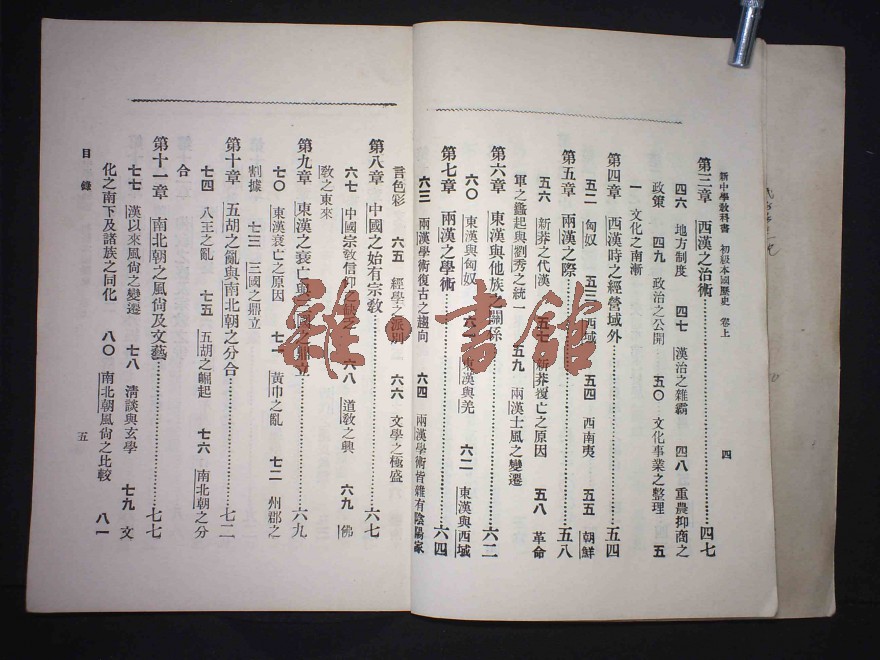 新中學教科書 初級本國歷史 卷上
四
第三章 西漢之治術 四七
四六 地方制度 四七 漢治之雜霸 四八 重農抑商之
政策 四九 政治之公開 五〇 文化事業之整理 五
一 文化之南漸
第四章 西漢時之經營域外 五四
五二 匈奴 五三 西域 五四 西南夷 五五 朝鮮
第五章 兩漢之際 五八
五六 新莽之代漢 五七 新莽覆亡之原因 五八 革命
軍之蠭起與劉秀之統一 五九 兩漢士風之變遷
第六章 東漢與他族之關係 六二
六〇 東漢與匈奴 六一 東漢與羌 六二 東漢與西域
第七章 兩漢之學術 六四
六三 兩漢學術復古之趨向 六四 兩漢學術皆雜有陰陽家
言色彩 六五 經學之派別 六六 文學之極盛
第八章 中國之始有宗教 六七
六七 中國宗教信仰之 六八 道教之興 六九 佛
教之東來
第九章 東漢之衰亡與三國之鼎立 六九
七〇 東漢衰亡之原因 七一 黃巾之亂 七二 州郡之
割據 七三 三國之鼎立
第十章 五胡之亂與南北朝之分合 七二
七四 八王之亂 七五 五胡之崛起 七六 南北朝之分
合
第十一章 南北朝之風尙及文藝 七七
七七 漢以來風尙之變遷 七八 清談與玄學 七九 文
化之南下及諸族之同化 八〇 南北朝風尙之比較 八一
目錄
五
雜·書館